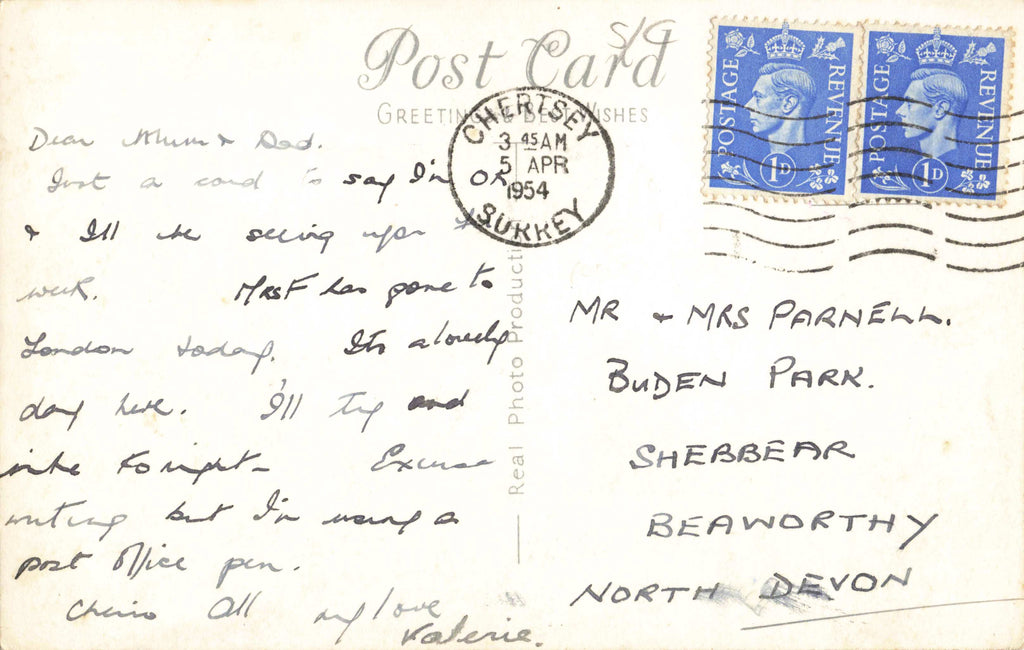 Post Card
5/6
GREETINGS & BEST WISHES
CHERTSEY
3 45 AM
5 APR
1954
SURREY
POSTAGE REVENUE
1D
POSTAGE REVENUE
1D
Dear Mum & Dad.
Just a card to say I'm OK
& I'll be seeing you
week. Mrs F has gone to
London today. It's a lovely
day here. I'll try and
write tonight - Excuse
writing but I'm using a
post office pen.
Cheerio All my love
Valerie.
Real Photo Producti
MR & MRS PARNELL.
BUDEN PARK.
SHEBBEAR
BEAWORTHY
NORTH DEVON